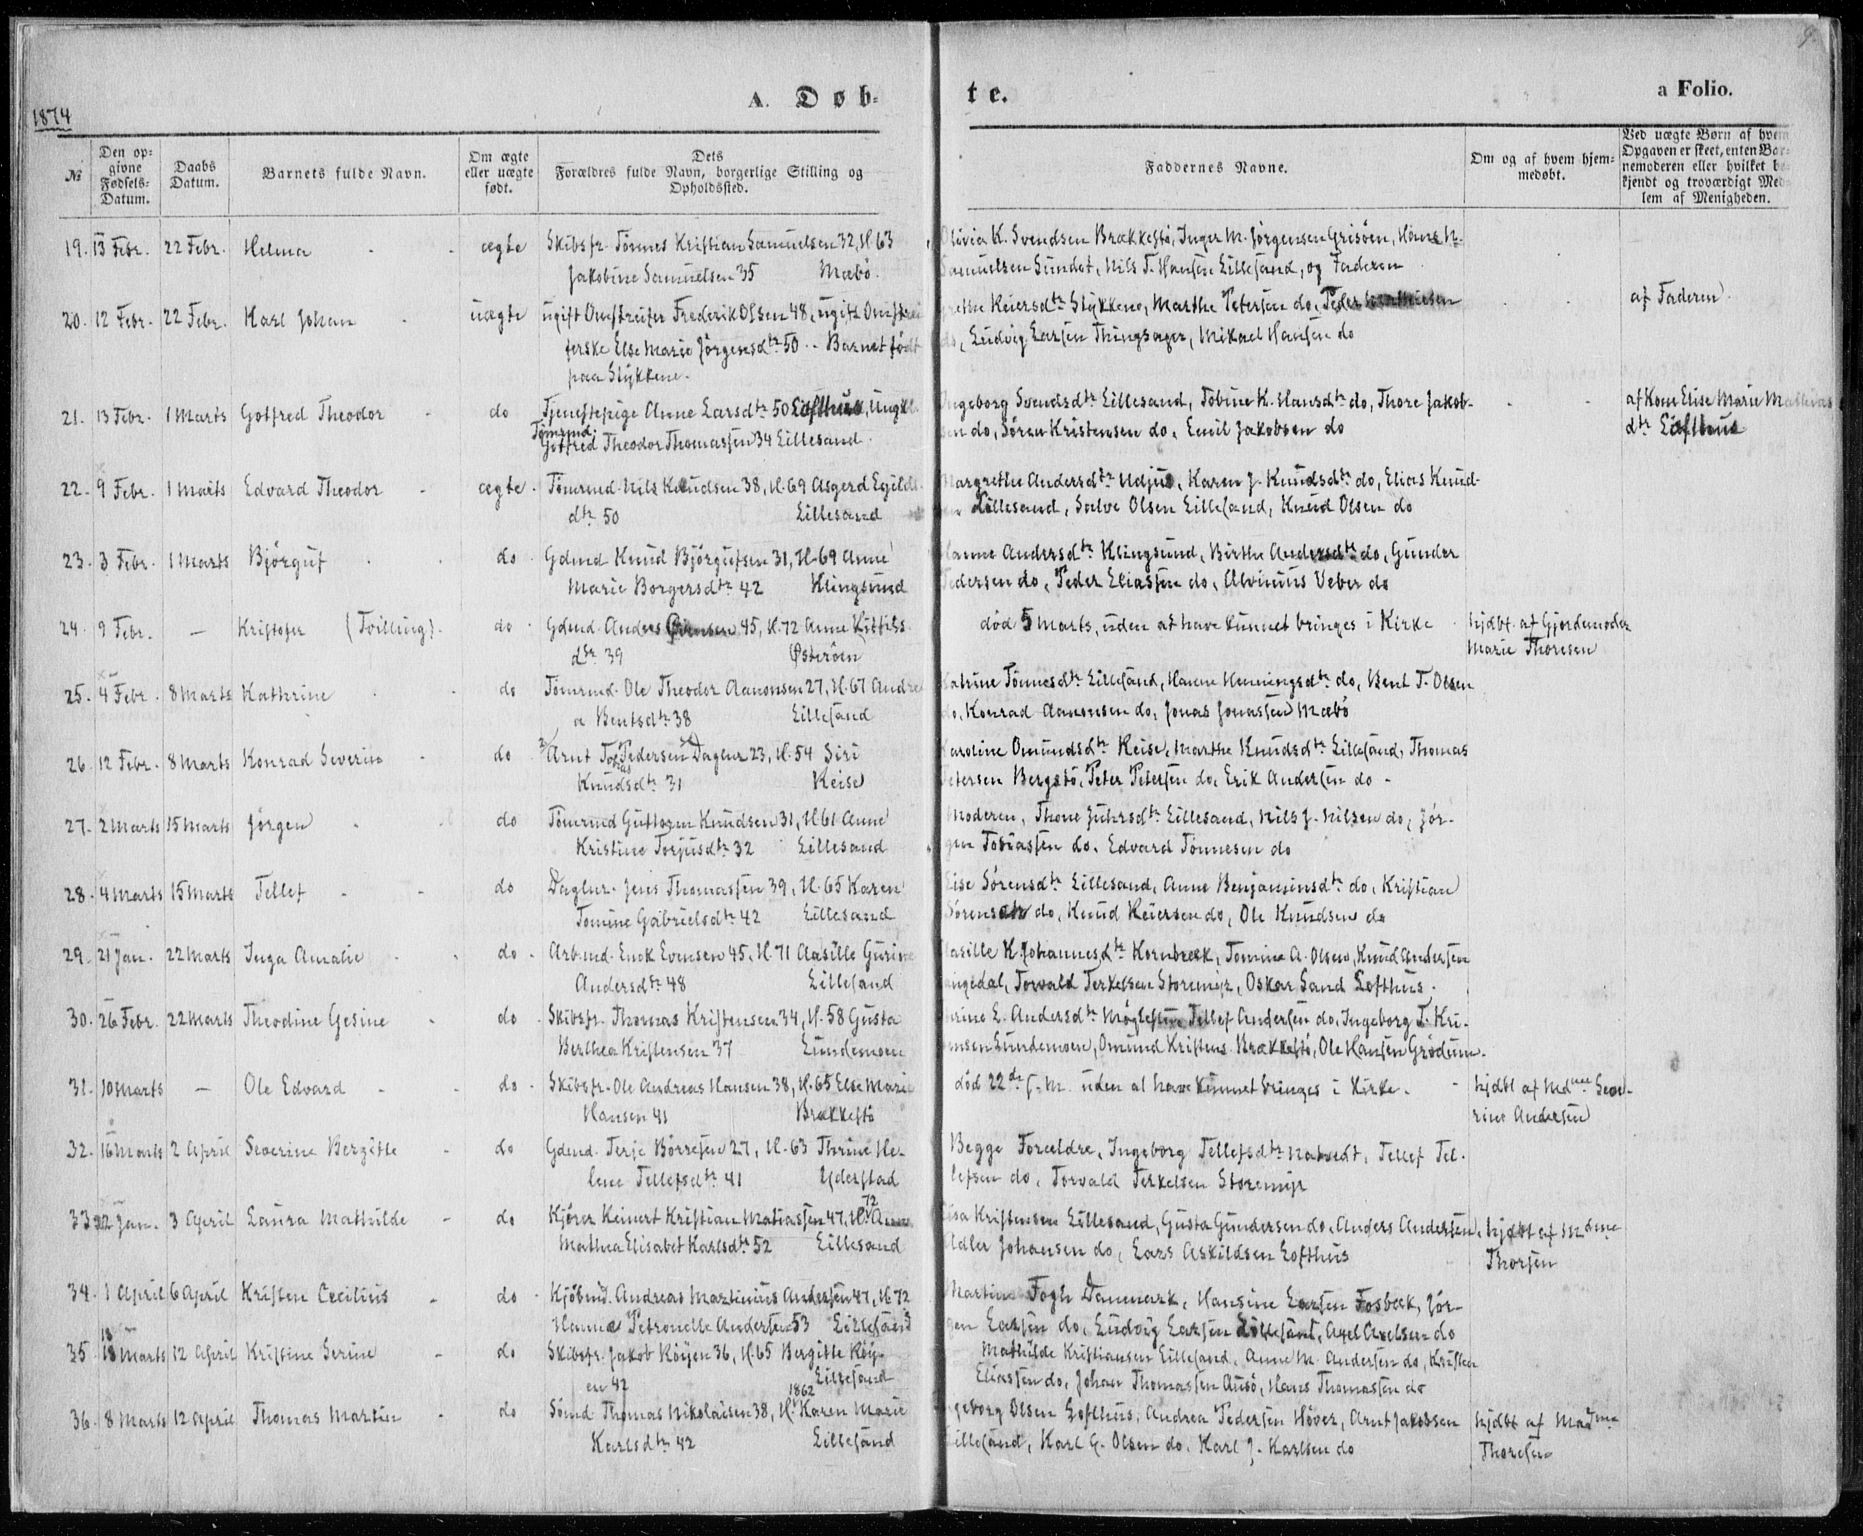 9.
1874
A. Døb-
te.
a Folio.
№
Den opgivne Fødsels-Datum.
Daabs Datum.
Barnets fulde Navn.
Om ægte eller uægte født.
Dets Forældres fulde Navn, borgerlige Stilling og Opholdssted.
Faddernes Navne.
Om og af hvem hjemmedøbt.
Ved uægte Børn af hvem Opgaven er skeet, enten Barnemoderen eller hvilket bekjendt og troværdigt Medlem af Menigheden.
19. 13 Febr. 22 Febr. Helma - - ægte Skibsfr. Tönnes Kristian Samuelsen 32, V. 63
Jakobine Samuelsen 35 Mæbö.
Olivia K. Svendsen Brækkestö, Inger M. Jörgensen Grisöen, Hans N.
Samuelsen Sundet, Nils T. Hansen Lillesand, og Faderen
20. 12 Febr. 22 Febr. Karl Johan - uægte ugift Omstreifer Frederik Olsen 48, ugift Omstrei
ferske Else Marie Jörgensdtr 50 - Barnet födt
paa Stykkene.
Keiersdtr Stykkene, Marthe Petersen do, Peder
do, Ludvig Larsen Thingsager, Mikael Hansen do
af Faderen
21. 13 Febr. 1 Marts Gotfred Theodor - do Tjenestepige Anne Larsdtr 50 Lofthus, Ungkl.
Tömrmd.
Gotfred Theodor Thomassen 34 Lillesand.
Ingeborg Svendsdtr Lillesand, Tobine K. Hansdtr do, Thore Jakob-
sen do, Sören Kristensen do, Emil Jakobsen do
af Kone Elise Marie Mathias
dtr Lofthus
22. 9 Febr. 1 Marts Edvard Theodor - ægte Tömrmd. Nils Knudsen 38, V. 69 Asgerd Egilds
dtr 50 Lillesand
Margrethe Andersdtr Udjus, Karen J. Knudsdtr do, Elias Knud-
sen Lillesand, Salve Olsen Lillesand, Knud Olsen do
23. 3 Febr. 1 Marts Björguf - do Gdmd Knud Björgufsen 31, V. 69 Anne
Marie Borgersdtr 42 Klingsund
Hanne Andersdtr Klingsund, Birthe Andersdtr do, Gunder
Pedersen do, Peder Eliassen do, Alvinius Veber do
24. 9 Febr. — Kristofer (Tvilling). do Gdmd. Anders 45, V. 72 Anne Kittils
dtr 39 Østeröen
död 5 Marts, uden at have kunnet bringes i Kirke
hjdbt. af Gjordemoder
Marie Thoresen
25. 4 Febr. 8 Marts Kathrine - do Tömrmd. Ole Theodor Aanonsen 27, V. 67 Andre
a Bentsdtr 38 Lillesand
Katrine Tönnesdtr Lillesand, Hanne Henningsdtr do, Bent T. Olsen
do, Konrad Aanonsen do, Jonas Jonassen Mæbö
26. 12 Febr. 8 Marts Konrad Severin - do Arnt Tobias Pedersen Daglnr 23, V. 54 Siri
Knudsdtr 31 Keise
Karoline Omundsdtr Keise, Marthe Knudsdtr Lillesand, Thomas
Petersen Bergstö, Peter Petersen do, Erik Andersen do -
27. 2 Marts 15 Marts Jörgen - do Tömrmd Guttorm Knudsen 31, V. 61 Anne
Kristine Torjusdtr 32 Lillesand
Moderen, Thone Juhrsdtr Lillesand, Nils J. Nilsen do, Jör-
gen Tobiassen do, Edvard Tönnesen do
28. 4 Marts 15 Marts Tellef - - do Daglnr. Jens Thomassen 39, V. 65 Karen
Tomine Gabrielsdtr 42 Lillesand
Elise Sörensdtr Lillesand, Anne Benjaminsdtr do, Kristian
Sörensen do, Knud Keiersen do, Ole Knudsen do
29. 21 Jan. 22 Marts Inga Amalie - - do Arbmd. Enok Evensen 45, V. 71 Aasille Gurine
Andersdtr 48 Lillesand
Aasille K. Johannesdtr Kornbrek, Tomine A. Olsen, Knud Andersen
Langedal, Torvald Terkelsen Storemyr, Oskar Sand Lofthus.
30. 26 Febr. 22 Marts Theodine Gesine - do Skibsfr. Thomas Kristensen 34, V. 58 Gusta
Berthea Kristensen 37 Lundemoen
E. Andersdtr Möglestue Tellef Andersen do, Ingeborg T. Kri-
Lundemoen, Omund Kristens. Brækkestö, Ole Hansen Grödum.
31. 10 Marts — Ole Edvard - - do Skibsfr. Ole Andreas Hansen 38, V. 65 Else Marie
Hansen 41 Brækkestö
död 22de s. M. uden at have kunnet bringes i Kirke.
hjdbt af Mdme Seve-
rine Andersen
32. 16 Marts 2 April Severine Bergitte - do Gdmd. Terje Börresen 27, V. 63 Thrine He-
lene Tellefsdtr 41 Yderstad
Begge Forældre, Ingeborg Tellefsdtr Natvedt, Tellef Tel-
lefsen do, Torvald Terkelsen Storemyr
33. 22 Jan. 3 April Laura Mathilde - do Kjörer Keinert Kristian Matiassen 47, V. 72 Anne
Mathea Elisabet Karlsdtr 52 Lillesand
Kristensen Lillesand, Gusta Gundersen do, Anders Andersen,
Adler Johansen do, Lars Askildsen Lofthus
hjdbt af Mdme
Thorsen
34. 1 April 6 April Kristen Cecilius - do Kjöbmd. Andreas Martinius Andersen 47, V. 72
Hanna Petronelle Andersen 53 Lillesand
Martine Fogh Danmark, Hansine Larsen Fosbæk, Jör-
gen Larsen do, Ludvig Larsen Lillesand, Axel Axelsen do
35. 18 Marts 12 April Kristine Serine - do Skibsfr. Jakob Köyen 36, V. 65 Bergitte Köy-
en 42 Lillesand
Mathilde Kristiansen Lillesand, Anne M. Andersen do, Kristen
Eliassen do, Johan Thomassen Ausö, Hans Thomassen do
36. 8 Marts 12 April Thomas Martin - do Sömd Thomas Nikolaisen 38, V. 1862 Karen Marie
Karlsdtr 42 Lillesand
Ingeborg Olsen Lofthus, Andrea Pedersen Höver, Arnt Jakobsen
Lillesand, Karl G. Olsen do, Karl J. Karlsen do
hjdbt af Madme
Thoresen